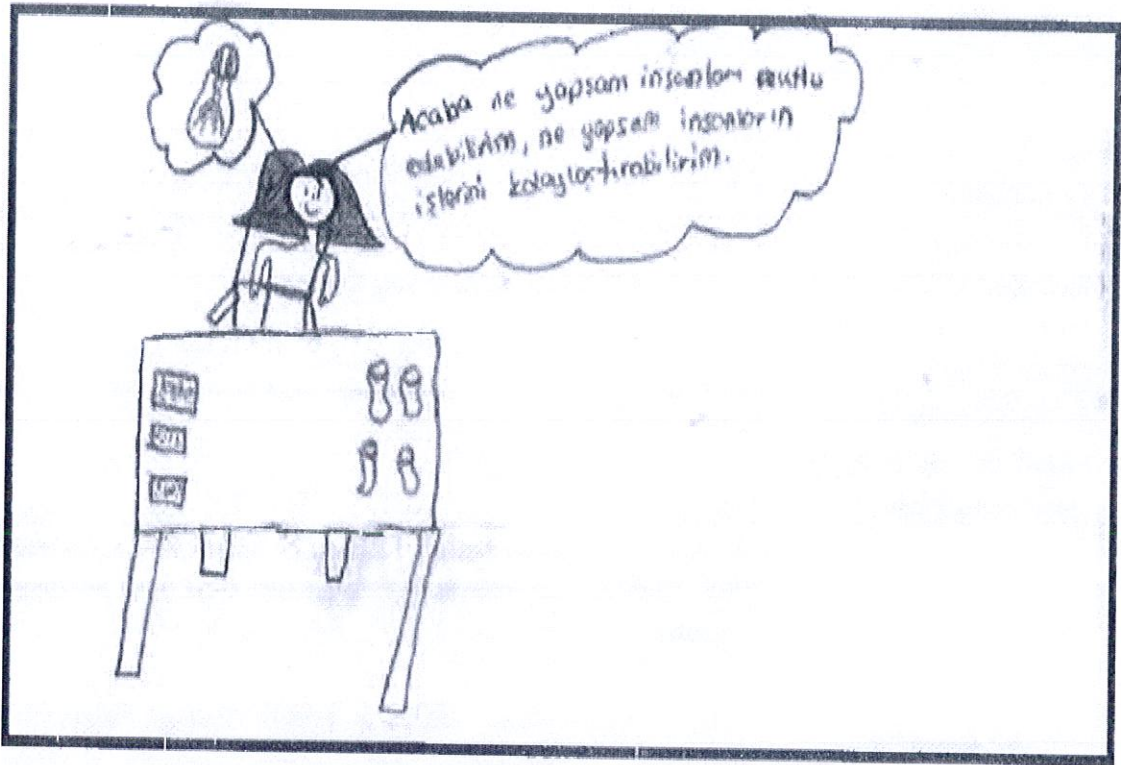 Acaba ne yapsam insanları mutlu
edebilirim, ne yapsam insanların
işlerini kolaylaştırabilirim.